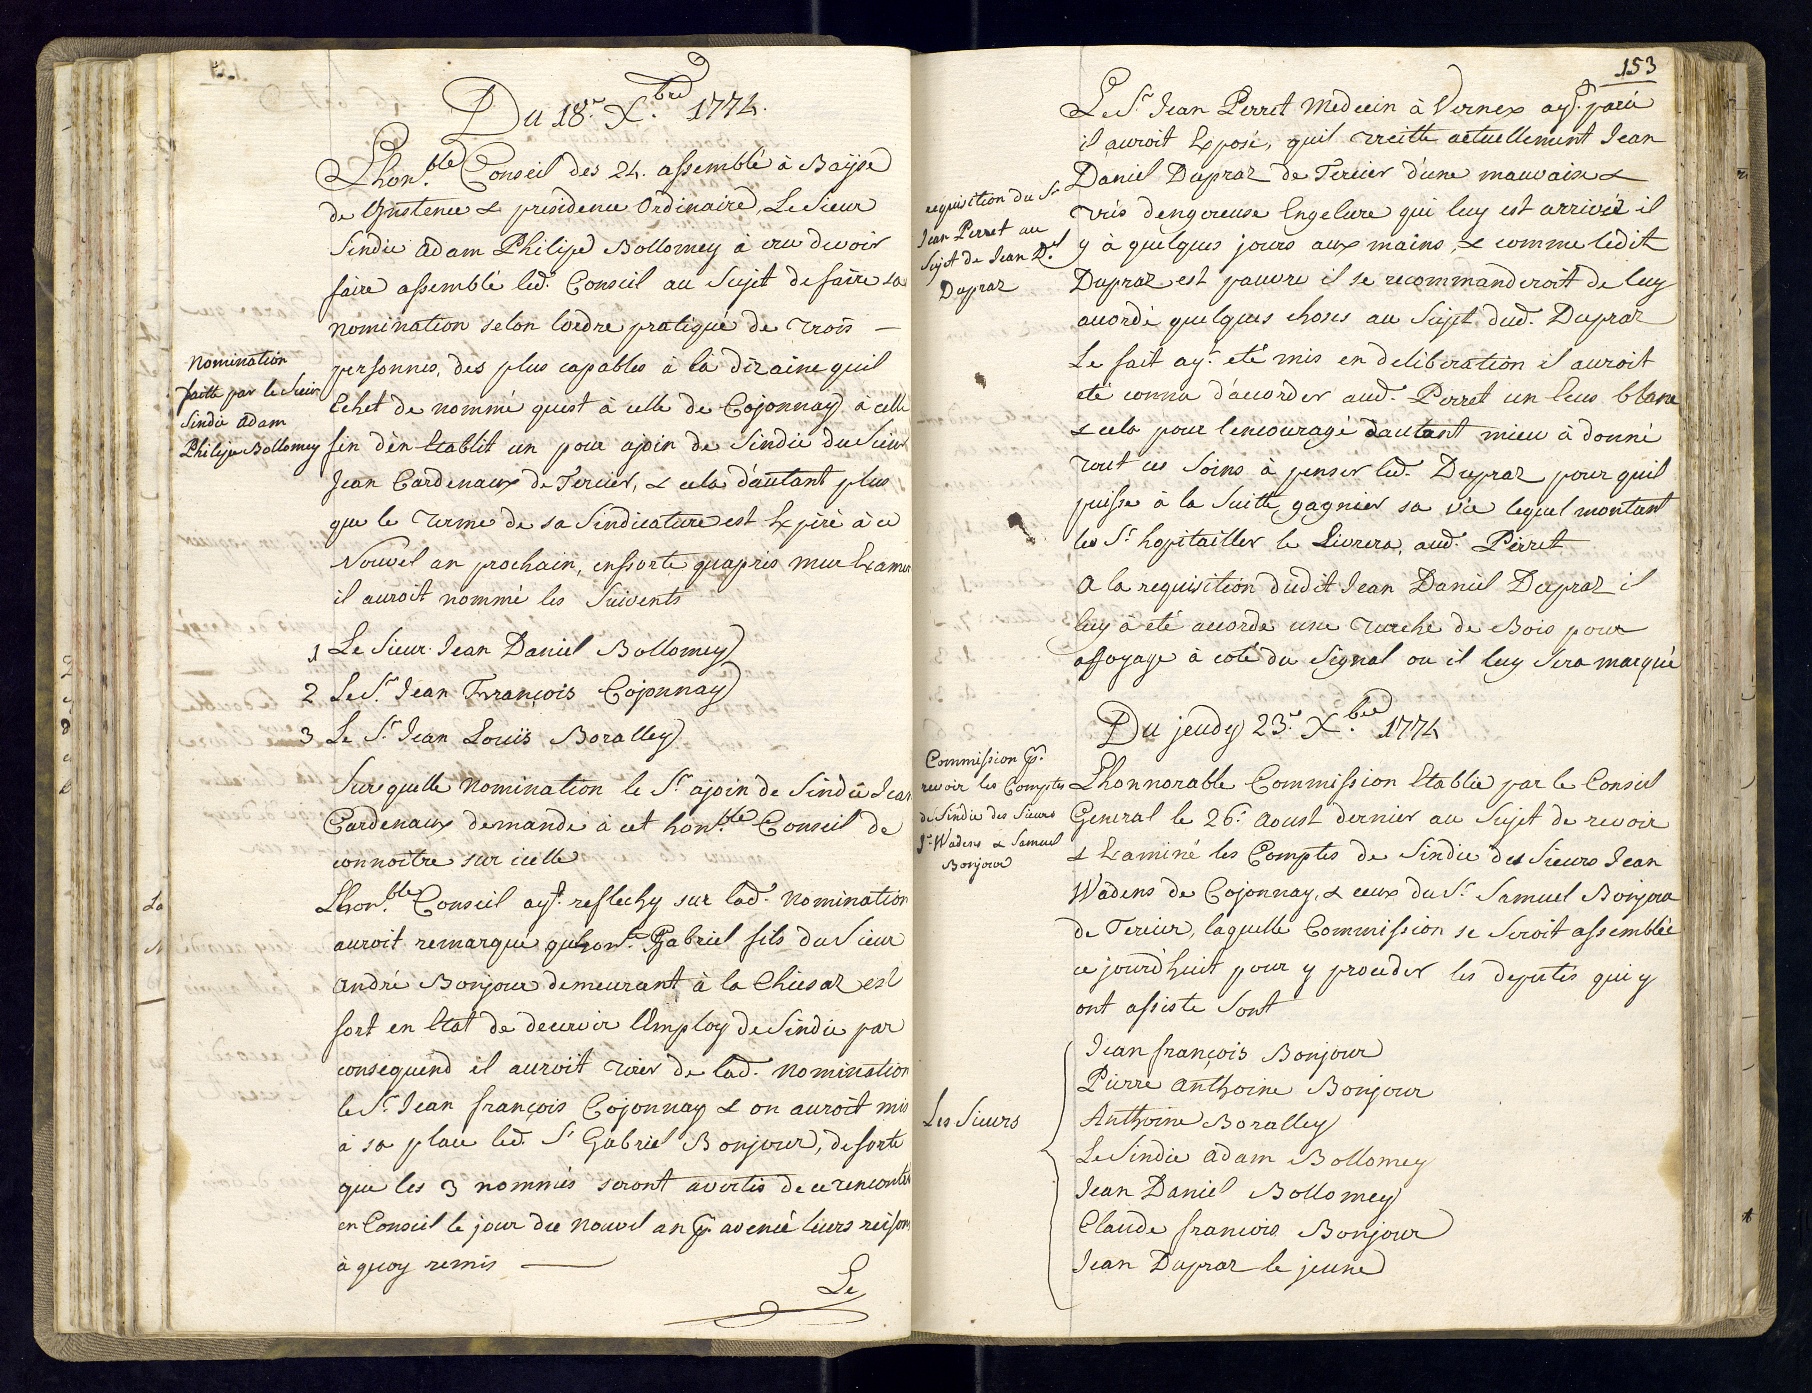 Du 18.e Xbre 1774.
Lhon.ble Conseil des 24. assemblé à Baÿse
de Gustence & presidence Ordinaire, Le Sieur
Sindic Adam Philipe Bollomey à cru devoir
faire assemblé led. Conseil au Sujet de faire sa
nomination selon lordre pratiqué de trois —
personnes, des plus capables à la dizaine quil
Echet de nommé quest à celle de Cojonnay à celle
fin d'en Etablit un pour ajoin de Sindic du Sieur
Jean Cardenaux de Tercier, & cela d'autant plus
que le terme de sa Sindicature est Expiré à ce
Nouvel an prochain, ensorte quapris mur Examen
il auroit nommé les Suivents
Nomination
faitte par le Sieur
Sindic Adam
Philipe Bollomey
1 Le Sieur Jean Daniel Bollomey
2 Le Sr. Jean François Cojonnay
3 Le Sr. Jean Louis Boralley
Sur quelle Nomination le Sr. ajoin de Sindic Jean
Cardenaux demande à cet hon.ble Conseil de
connoitre sur icelle
Lhon.ble Conseil ayt. reflechy sur lad. Nomination
auroit remarqué quhon.te Gabriel fils du Sieur
André Bonjour demeurant à la Chiesaz est
fort en Etat de decervir l'Employ de Sindic par
consequend il auroit tiréz de lad. Nomination
le Sr. Jean françois Cojonnay & on auroit mis
à sa place led. Sr Gabriel Bonjour, desorte
que les 3 nommés seront avertis de ce rencontré
en Conseil le jour du nouvel an pr. avencé leurs reisons
à quoy remis —
Le
La
153
Le Sr. Jean Perret Medecin à Vernex ayt. paru
il auroit Exposé, quil treitte actuellement Jean
Daniel Dupraz de Tercier d'une mauvaise &
très dengereuse Engelure qui luy est arrivée il
y à quelques jours aux mains, & comme ledit
Dupraz est pauvre il se recommanderoit de luy
acordé quelques choses au Sujet dud. Dupraz
Le fait ayt. eté mis en deliberation il auroit
eté connu d'accorder aud. Perret un Ecus blanc
& cela pour lencouragé dautant mieu à donné
tout ces Soins à penser led. Dupraz pour quil
puisse à la Suitte gagnier sa vie lequel montant
les Sr. hopitaillier le Livrera, aud. Perret
A la requisition dudit Jean Daniel Dupraz il
luy à été accorde une Turche de Bois pour
affoyage à coté du Signal ou il luy Sera marqué
requisition du Sr
Jean Perret au
Sujet de Jean D.el
Dupraz
Du jeudy 23.e Xbre 1774
Lhonnorable Commission Etablie par le Conseil
General le 26.e Aoust dernier au Sujet de revoir
& Examiné les Comptes de Sindic des Sieurs Jean
Wadens de Cojonnay, & ceux du Sr. Samuel Bonjour
de Tercier, laquelle Commission se Seroit assemblée
ce jourdhuit pour y proceder les deputés qui y
ont assiste Sont
Commission pr.
revoir les Comptes
de Sindic des Sieurs
Jn Wadens & Samuel
Bonjour
Les Sieurs
Jean françois Bonjour
Pierre Anthoine Bonjour
Anthoine Boralley
Le Sindic Adam Bollomey
Jean Daniel Bollomey
Claude francois Bonjour
Jean Dupraz le jeune